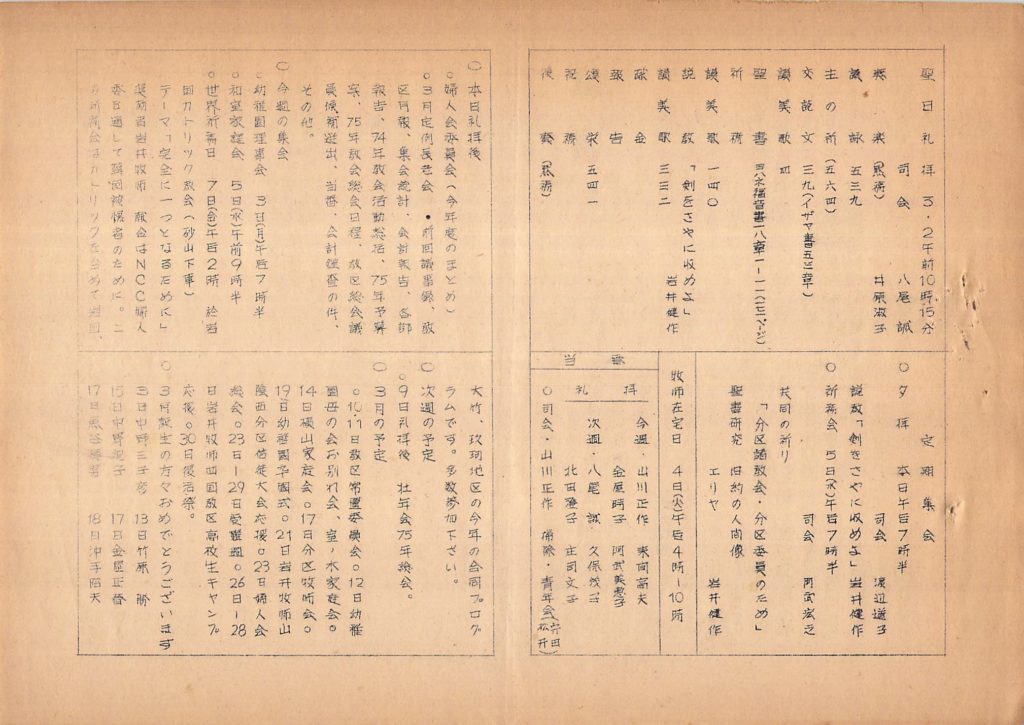 聖日礼拝 3・2午前10時15分
司会 八尾 誠
奏楽(黙祷) 井原淑子
讃詠 五三九
主の祈(五六四)
交読文 三九(イザヤ書五三章)
讃美歌 四
聖書 ヨハネ福音書一八章一-一一
祈祷
讃美歌 一四〇
説教 「剣をさやに収めよ」
岩井健作
讃美歌 三三二
献金
報告
頌栄 五四一
祝祷
後奏(黙祷)
定期集会
○夕拝 本日午后7時半
司会 渡辺道子
説教「剣をさやに収めよ」岩井健作
○祈祷会 5日(水)午后7時半
司会 阿武宏之
共同の祈り
「分区諸教会・分区委員のため」
聖書研究 旧約の人間像
エリヤ 岩井健作
牧師在宅日 4日(火)午后4時-10時
当番
礼拝
今週・山川正作 東岡高夫
金屋時子 阿武美恵子
次週・八尾 誠 久保茂子
北田澄子 庄司文子
○司会・山川正作 掃除・青年会
○本日礼拝後
○婦人会委員会(今年度のまとめ)
○3月定例長老会 ●前回議事録、教
区月報、集会統計、会計報告、各部
報告、74年教会活動総括、75年予算
案、75年教会総会日程、教区総会議
員候補選出、当番、会計監査の件、
その他。
○今週の集会
○幼稚園理事会 3日(月)午后7時半
○和室家庭会 5日(水)午前9時半
○世界祈祷日 7日(金)午后2時 於岩
国カトリック教会(砂山下車)
テーマ「完全に一つとなるために」
奨励者岩井牧師 献金はNCC婦人
委員通して韓国被爆者のために。こ
大竹、玖珂地区の今年の合同プログ
ラムです。多数参加下さい。
○次週の予定
○9日礼拝後 壮年会75年総会。
○3月の予定
○10.11日教区常置委員会○12日幼稚
園母の会お別れ会、室ノ木家庭会○
14日横山家庭会○17日分区牧師会○
19日幼稚園卒園式○21日岩井牧師山
陽西分区信徒大会応援○23日婦人会
総会○23日-29日受難週○26日-28
日岩井牧師四国教区高校生キャンプ
応援○30日復活祭。
○3月誕生の方々おめでとうございます
3日中野三子 13日竹原 勝
15日中野 17日金屋正
17日 18日沖手昭夫